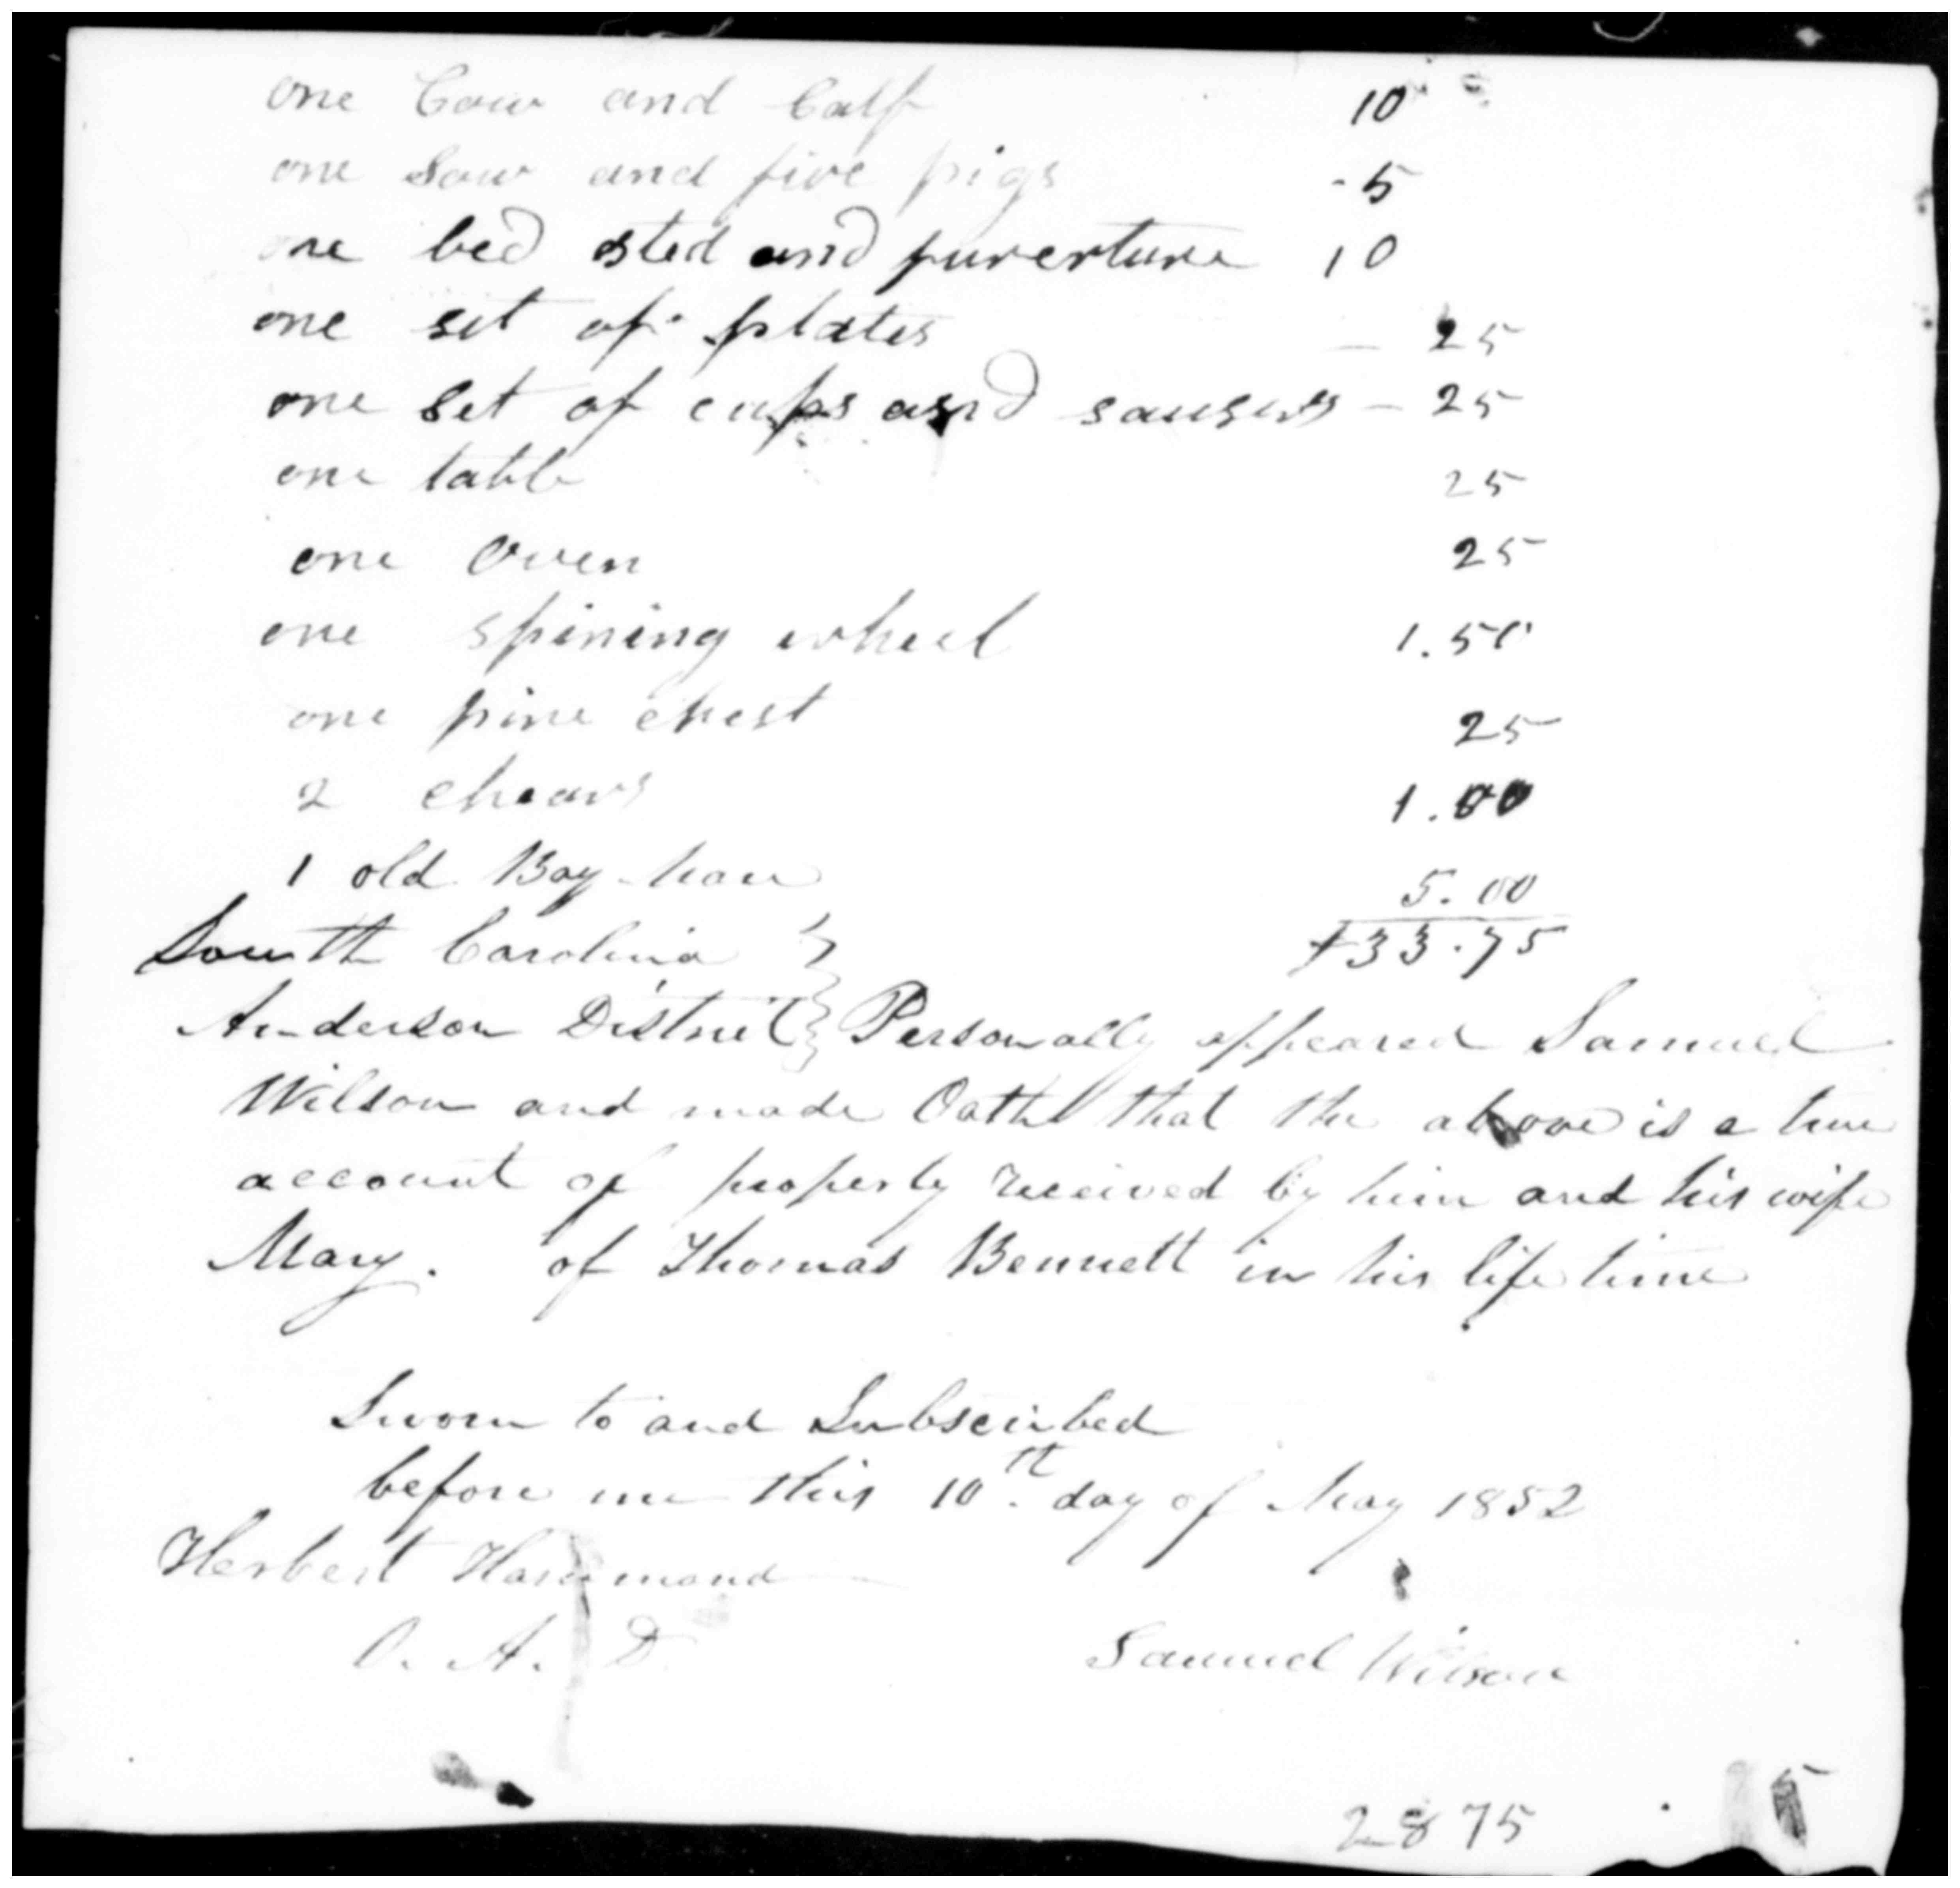 one Cow and Calf 10
one Sow and five pigs - 5
one bed sted and purverture 10
one set of plates — 25
one Set of cups and sausers — 25
one table 25
one oven 25
one spining wheel 1.50
one pine chest 25
2 chears 1.00
1 old Bay mare 5.00
South Carolina } $33.75
Anderson District } Personally appeared Samuel
Wilson and made Oath that the above is a true
account of property received by him and his wife
Mary. of Thomas Bennett in his life time
Sworn to and Subscribed
before me this 10th day of May 1852
Herbert Hammond
O. A. D.
Samuel Wilson
28 75